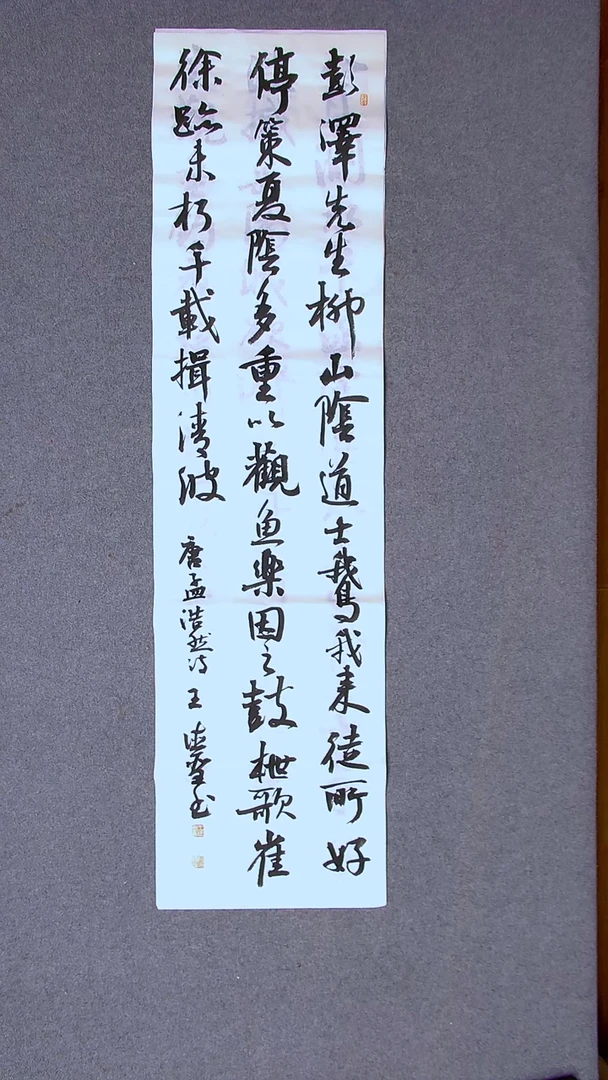 彭澤先生柳山陰道士鵞我来從所好
停策夏陰多重以觀魚樂因之鼓枻歌崔
徐跡未朽千載揖清波
唐孟浩然诗 王 书